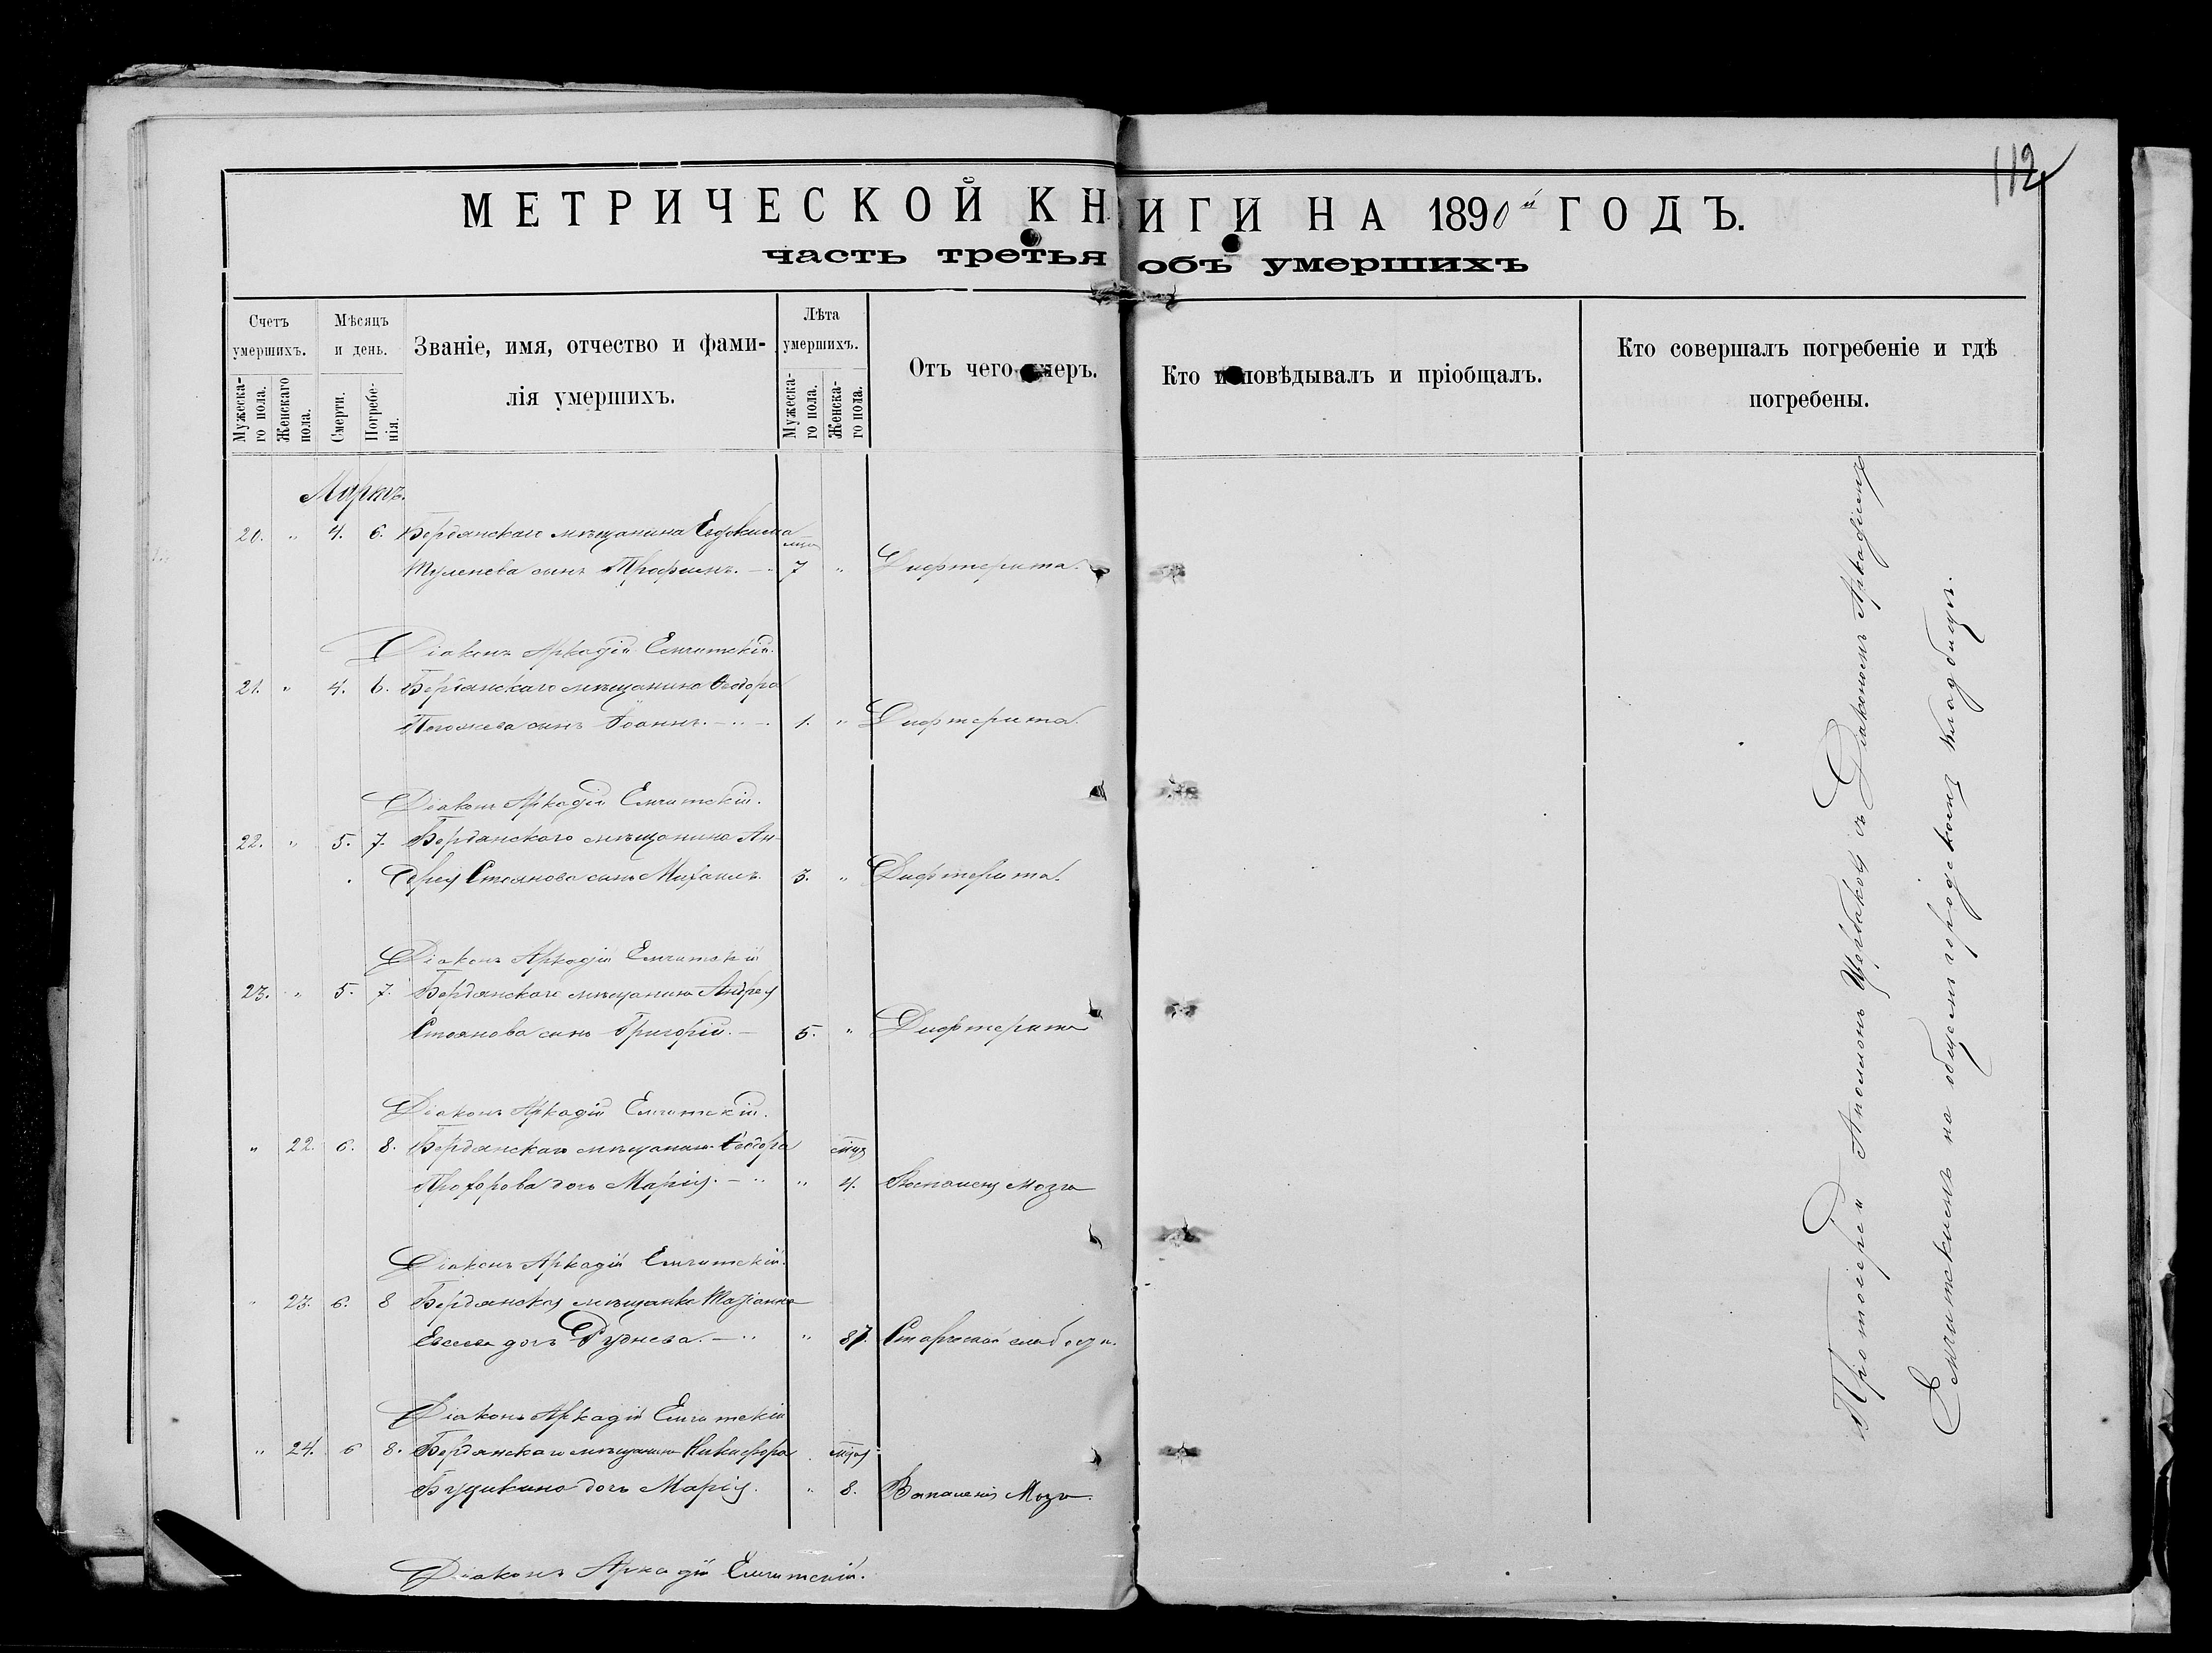 112
МЕТРИЧЕСКОЙ КНИГИ НА 1890й ГОДЪ.
часть третья объ умершихъ
Счетъ умершихъ.
Мужескаго пола.
Женскаго пола.
Мѣсяцъ и день.
Смерти.
Погребенія.
Званіе, имя, отчество и фамилія умершихъ.
Лѣта умершихъ.
Мужескаго пола.
Женскаго пола.
Отъ чего умеръ.
Кто исповѣдывалъ и пріобщалъ.
Кто совершалъ погребеніе и гдѣ погребены.
Мартъ.
20. " 4. 6. Бердянскаго мѣщанина Евдокима
сынъ Трофимъ. 7 " Дифтерита.
Діаконъ Аркадій Емчитскій.
21. " 4. 6. Бердянскаго мѣщанина Ѳеодора
сынъ Іоаннъ. 1. " Дифтерита.
Діаконъ Аркадій Емчитскій.
22. " 5. 7. Бердянскаго мѣщанина Ан-
дрея Стоянова сынъ Михаилъ. 3. " Дифтерита.
Діаконъ Аркадій Емчитскій
23. " 5. 7. Бердянскаго мѣщанина Андрея
Стоянова сынъ Григорій. 5. " Дифтерита
Діаконъ Аркадій Емчитскій.
" 22. 6. 8. Бердянскаго мѣщанина Ѳеодора мцъ
Прохорова дочь Марія. " 4. Воспаленія Мозга
Діаконъ Аркадій Емчитскій.
" 23. 6. 8 Бердянская мѣщанка Татіанна
дочь Руднева. " 87. Старческой слабости.
Діаконъ Аркадій Емчитскій
" 24. 6 8. Бердянскаго мѣщанина Никифора
дочь Марія. " 8. Воспаленія Мозга.
Діаконъ Аркадій Емчитскій.
Протоіерей Аполлонъ Щербаковъ съ Діакономъ Аркадіемъ
Емчитскимъ на общемъ городскомъ кладбищѣ.